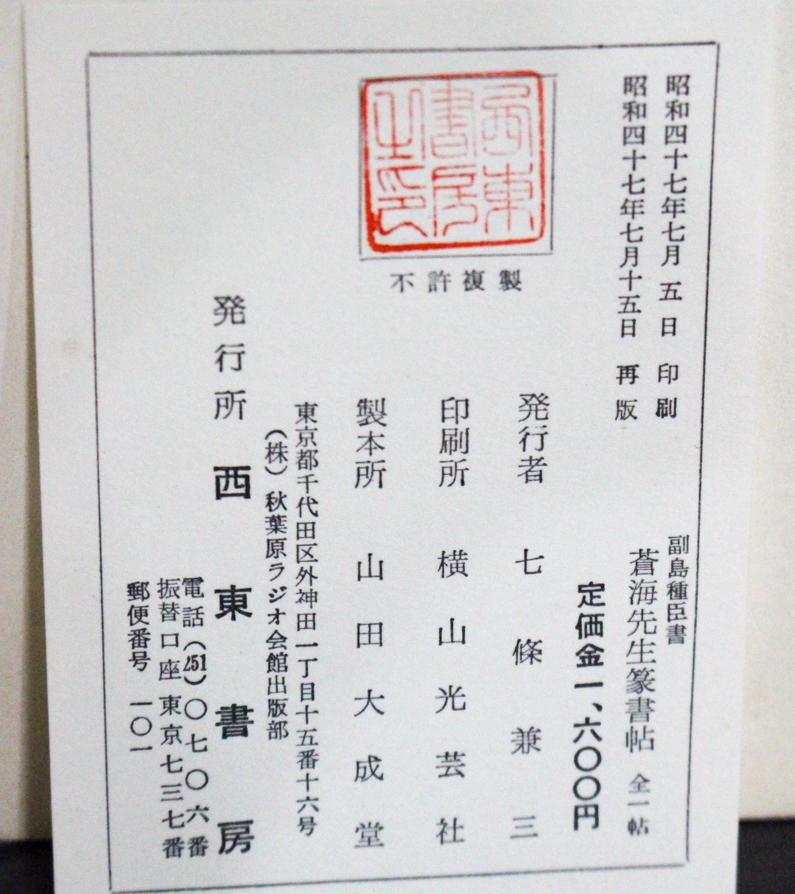 昭和四十七年七月 五 日 印刷
昭和四十七年七月十五日 再版
副島種臣書
蒼海先生篆書帖 全一帖
定価金一、六〇〇円
西東書房之印
不許複製
発行者 七條兼三
印刷所 横山光芸社
製本所 山田大成堂
東京都千代田区外神田一丁目十五番十六号
(株)秋葉原ラジオ会館出版部
発行所 西東書房
電話(251)〇七〇六番
振替口座東京七三七番
郵便番号 一〇一